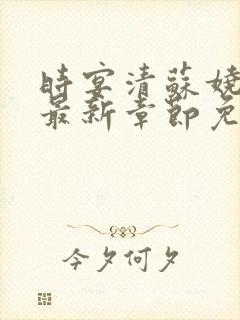 時宴清蘇嬈
最新章節免
今夕何夕